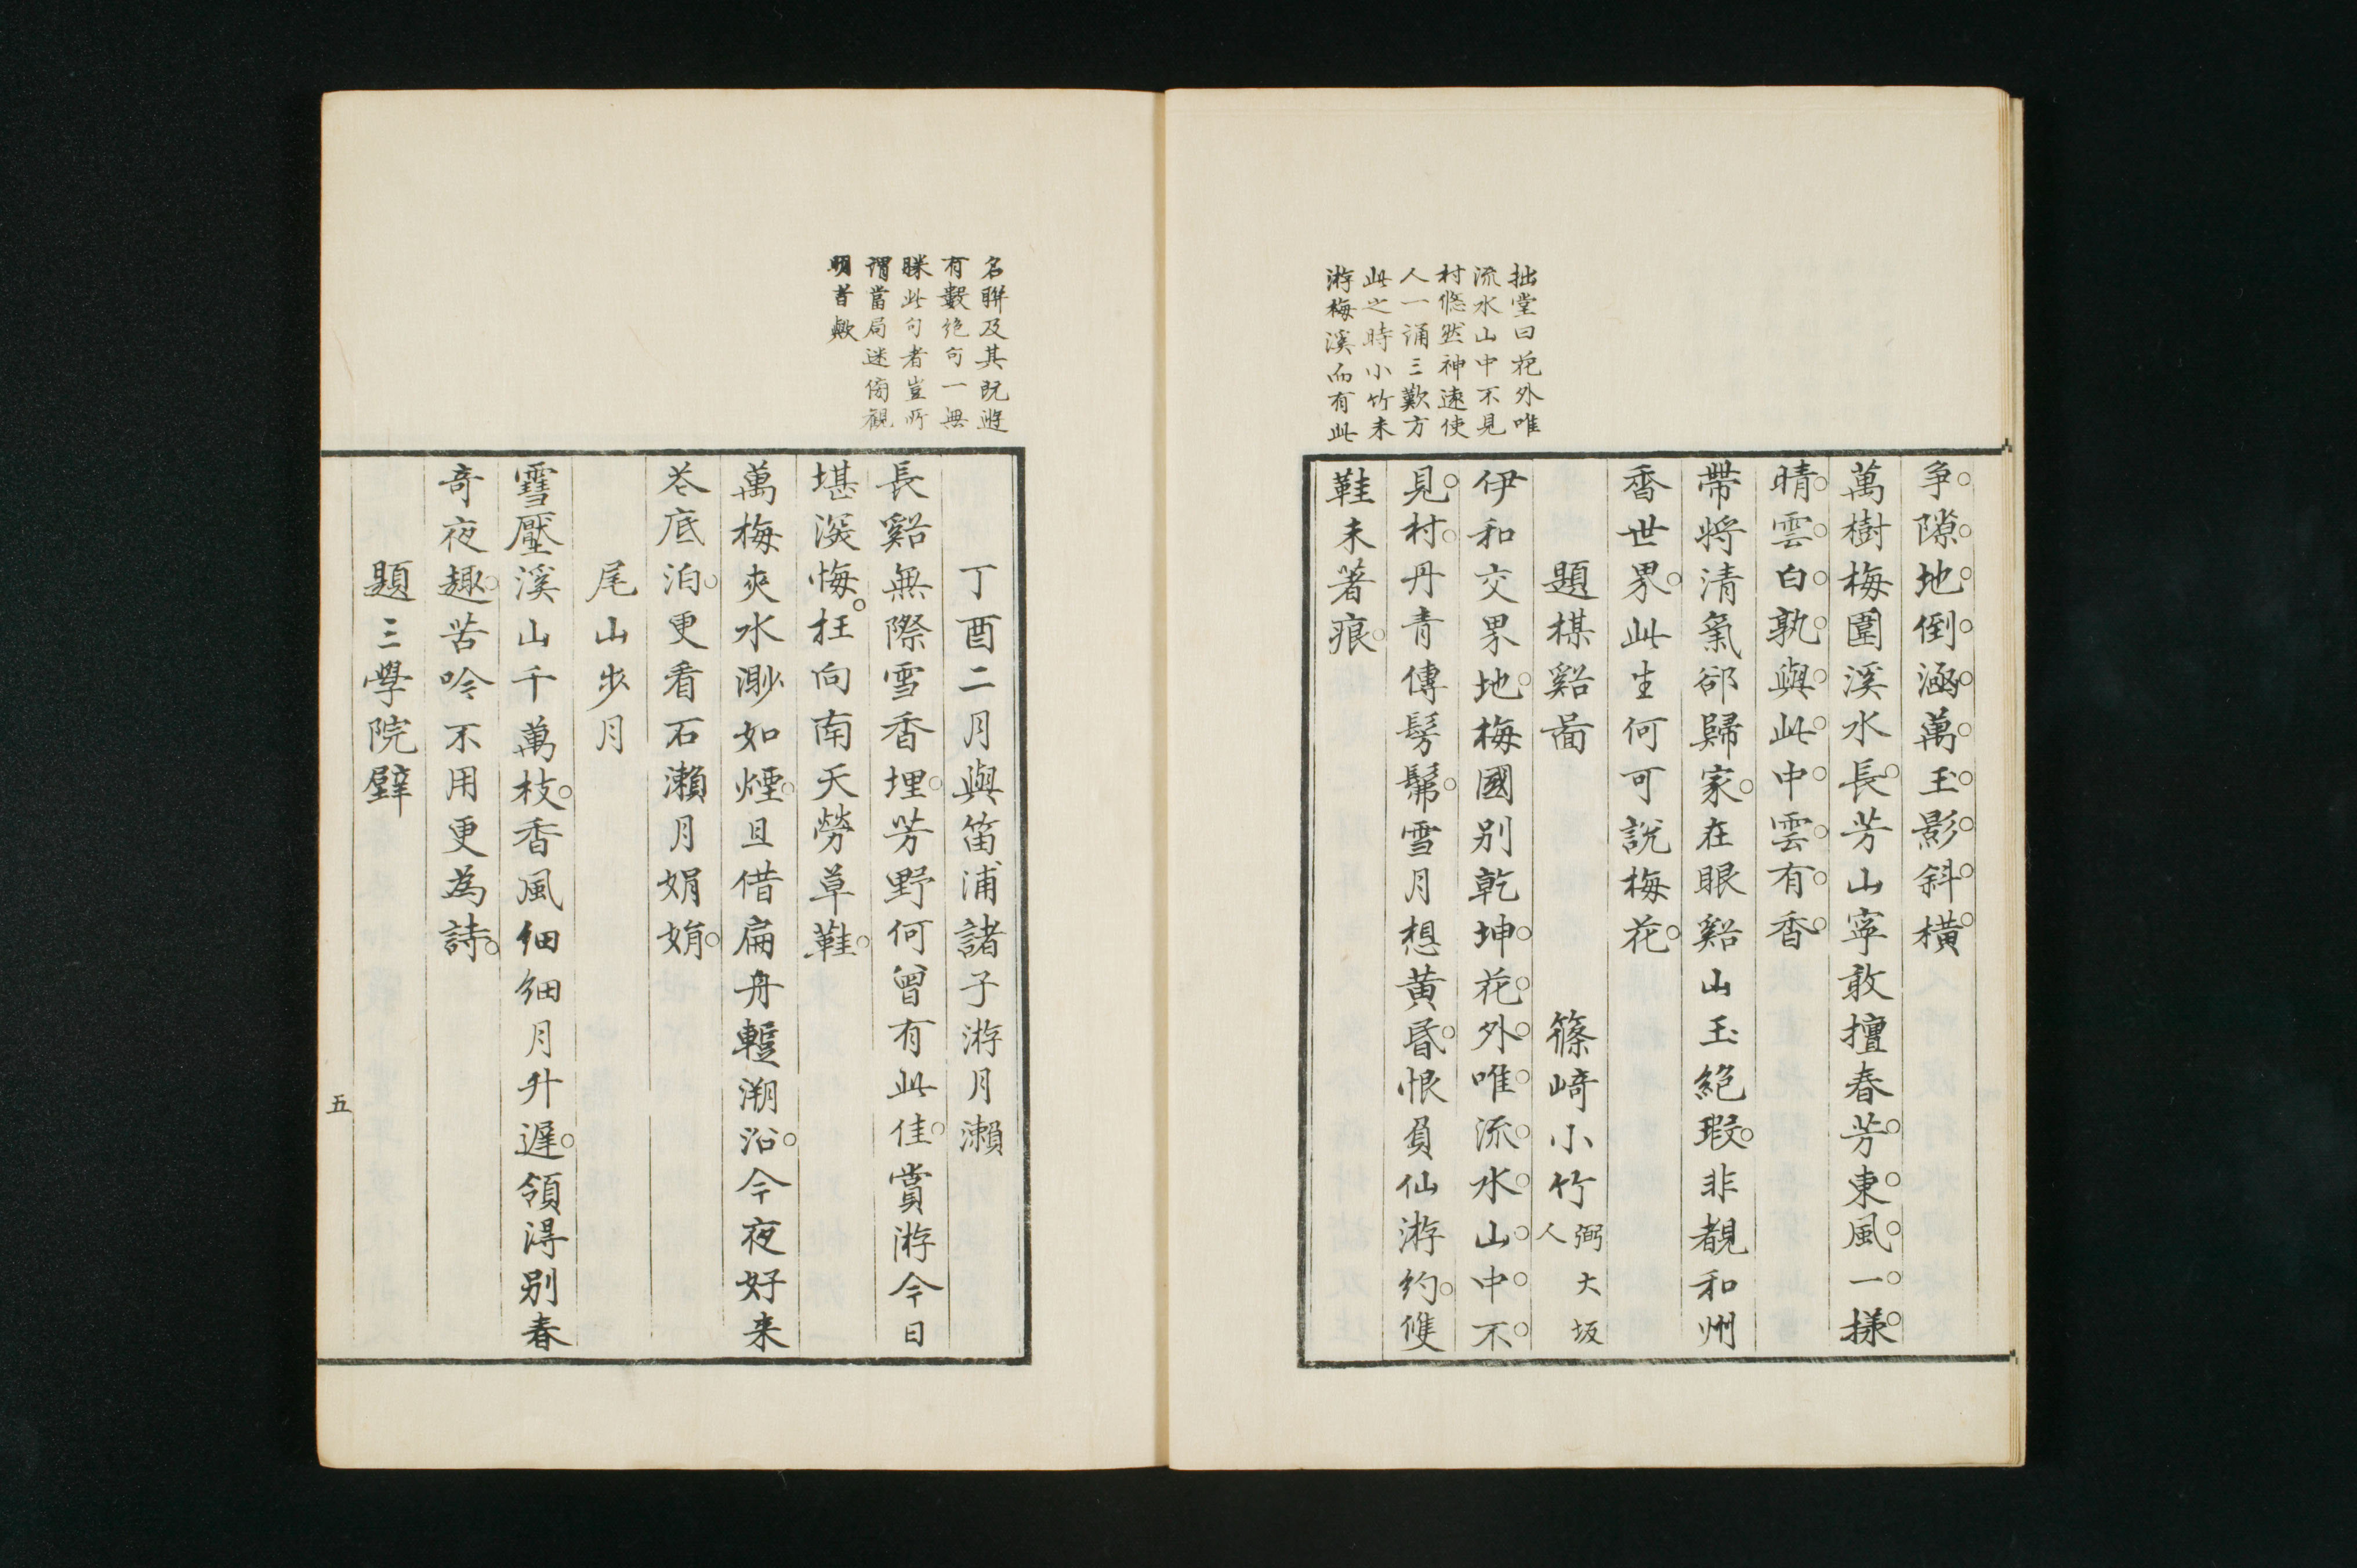 拙堂曰花外唯
流水山中不見
村悠然神遠使
人一誦三歎方
此之時小竹未
游梅溪而有此
争隙地倒涵萬玉影斜橫
萬樹梅圍溪水長芳山寧敢擅春芳東風一様
晴雲白孰與此中雲有香
帶將清氣郤歸家在眼谿山玉絕瑕非覩和州
香世界此生何可說梅花
題楳谿啚　篠﨑小竹弼大坂人
伊和交界地梅國別乾坤花外唯流水山中不
見村丹青傳髣髴雪月想黃昏恨負仙游約雙
鞋未著痕
名聨及其既遊
有數絶句一無
眹此句者豈所
謂當局迷傍觀
明者歟
丁酉二月與笛浦諸子游月瀨
長谿無際雪香埋芳野何曾有此佳賞游今日
堪深悔枉向南天勞草鞋
萬梅夾水渺如煙且借扁舟蹔溯沿今夜好来
花底泊更看石瀨月娟娟
尾山步月
雪壓溪山千萬枝香風細細月升遲領得别春
奇夜趣苦吟不用更為詩
題三學院壁
五